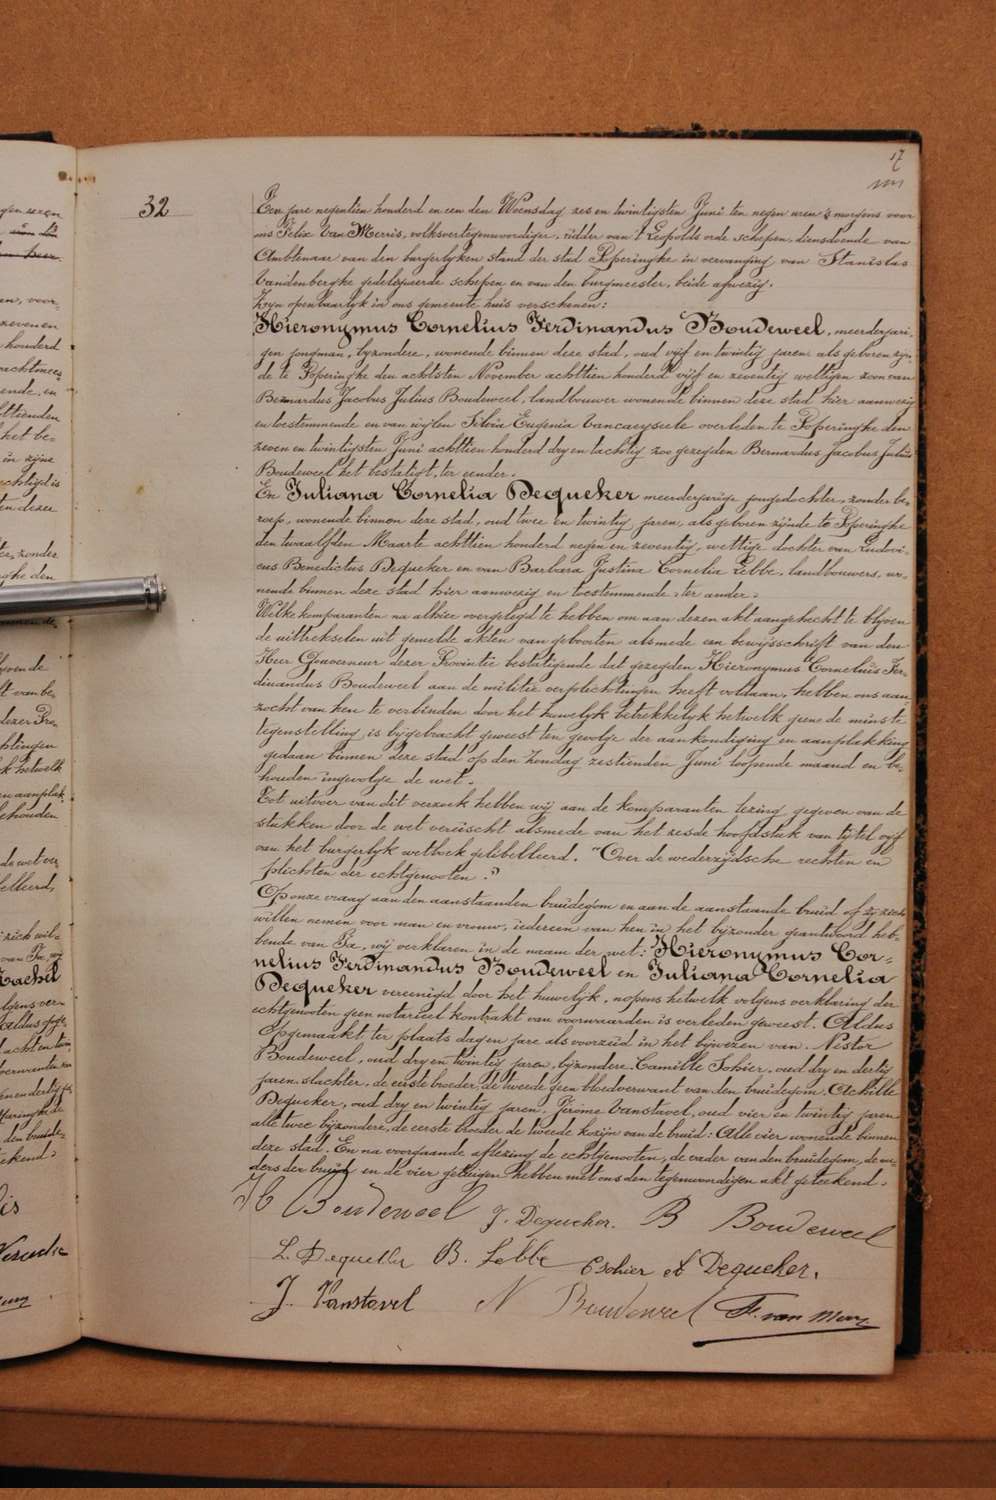 17
32
Een jare negentien honderd en een den Woensdag zes en twintigsten Juni ten negen uren 's morgens voor
ons Felix Van Merris, volksvertegenwoordiger, ridder van 't Leopolds orde schepen, diensdoende van
Ambtenaar van den burgerlyken stand der stad Poperinghe in vervanging van Stanislas
Vandenberghe gedelegueerde schepen en van den burgmeester, beide afwezig.
Zyn openbaarlyk in ons gemeente huis verschenen:
Hieronymus Cornelius Ferdinandus Boudeweel, meerderjari-
gen jongman, byzondere, wonende binnen deze stad, oud vyf en twintig jaren als geboren zijn-
de te Poperinghe den achtsten November achttien honderd vijf en zeventig wettigen zoon van
Bernardus Jacobus Julius Boudeweel, landbouwer wonende binnen deze stad hier aanwezig
en toestemmende en van wijlen Silvia Eugenia Vancaeyseele overleden te Poperinghe den
zeven en twintigsten Juni achttien honderd dry en tachtig zoo gezegden Bernardus Jacobus Julius
Boudeweel het bestatigt, ter eender.
En Juliana Cornelia Dequeker meerderjarige jongedochter, zonder be-
roep, wonende binnen deze stad, oud twee en twintig jaren, als geboren zijnde te Poperinghe
den twaalfden Maarte achttien honderd negen en zeventig, wettige dochter van Ludovi-
cus Benedictus Dequeker en van Barbara Justina Cornelia Lebbe, landbouwers, wo-
nende binnen deze stad hier aanwezig en toestemmende, ter ander.
Welke komparanten na alhier overgelegd te hebben om aan dezen akt aangehecht te blyven
de uittrekselen uit gemelde akten van geboorten alsmede een bewijsschrift van den
Heer Gouverneur dezer Provintie bestatigende dat gezegden Hieronymus Cornelius Fer-
dinandus Boudeweel aan de militie verplichtingen heeft voldaan, hebben ons aan
zocht van hen te verbinden door het huwelyk betrekkelyk hetwelk geene de minste
tegenstelling is bijgebracht geweest ten gevolge der aankondiging en aanplakking
gedaan binnen deze stad op den Zondag zestienden Juni loopende maand en be-
houden ingevolge de wet.
Tot uitvoer van dit verzoek hebben wij aan de komparanten lezing gegeven van de
stukken door de wet vereischt alsmede van het zesde hoofdstuk van tytel vyf
van het burgerlyk wetboek gelibelleerd. "Over de wederzijdsche rechten en
plichten der echtgenooten."
Op onze vraag aan den aanstaanden bruidegom en aan de aanstaande bruid of zy zich
willen nemen voor man en vrouw, iedereen van hen in het byzonder geantwoord heb-
bende van Ja, wij verklaren in de naam der wet: Hieronymus Cor-
nelius Ferdinandus Boudeweel en Juliana Cornelia
Dequeker vereenigd door het huwelijk, nopens hetwelk volgens verklaring der
echtgenooten geen notarieel kontrakt van voorwaarden is verleden geweest. Aldus
Opgemaakt ter plaats dag en jare als voorzeid in het bijwezen van Nestor
Boudeweel, oud dry en twintig jaren, bijzondere, Camille Sohier, oud dry en dertig
jaren, slachter, de eerste broeder, de tweede geen bloedverwant van den bruidegom. Achille
Dequeker, oud dry en twintig jaren, Jérome Vanstavel, oud vier en twintig jaren
alle twee bijzondere, de eerste broeder de tweede kozijn van de bruid: Alle vier wonende binnen
deze stad. En na voorgaande aflezing de echtgenooten, de vader van den bruidegom, de ou-
ders der bruid en de vier getuigen hebben met ons den tegenwoordigen akt geteekend.
H C Boudeweel J. Dequeker. B Boudeweel
L. Dequeker B. Lebbe C Sohier A Dequeker.
J. Vanstavel N Boudeweel F. van Merris